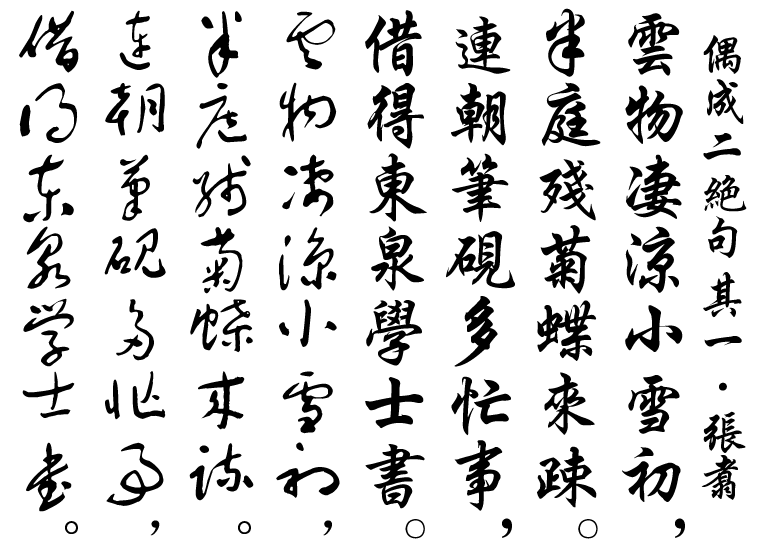 偶成二絕句其一·張翥
雲物凄涼小雪初，
半庭殘菊蝶來疎。
連朝筆硯多忙事，
借得東泉學士書。
雲物凄涼小雪初，
半庭殘菊蝶來疎。
連朝筆硯多忙事，
借得東泉学士書。